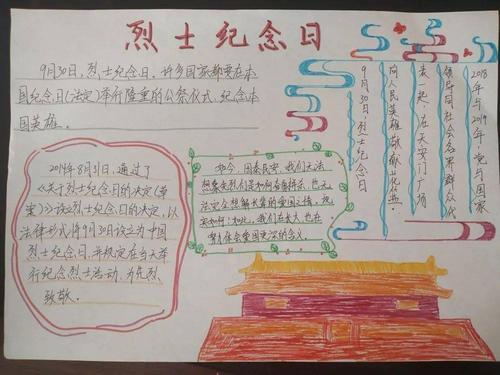 烈士纪念日
9月30日，烈士纪念日，许多国家都要在本
国纪念日(法定)举行隆重的公祭仪式，纪念本
国英雄。
2014年8月31日，通过了
《关于烈士纪念日的决定(草
案)》设立烈士纪念日的决定，以
法律形式将9月30日设立为中国
烈士纪念日，并规定在当天举
行纪念烈士活动，为先烈
致敬。
如今，国泰民安，我们无法
想象先烈们是如何奋勇拼杀，也无
法完全想解长辈的爱国之情，地
安如何如此，我们在长大，也在
努力体会爱国更深的含义。
2018年与2019年，党与国家
领导同社会各界群众代
表一起，在天安门广场
向人民英雄敬献花篮。
9月30日，烈士纪念日